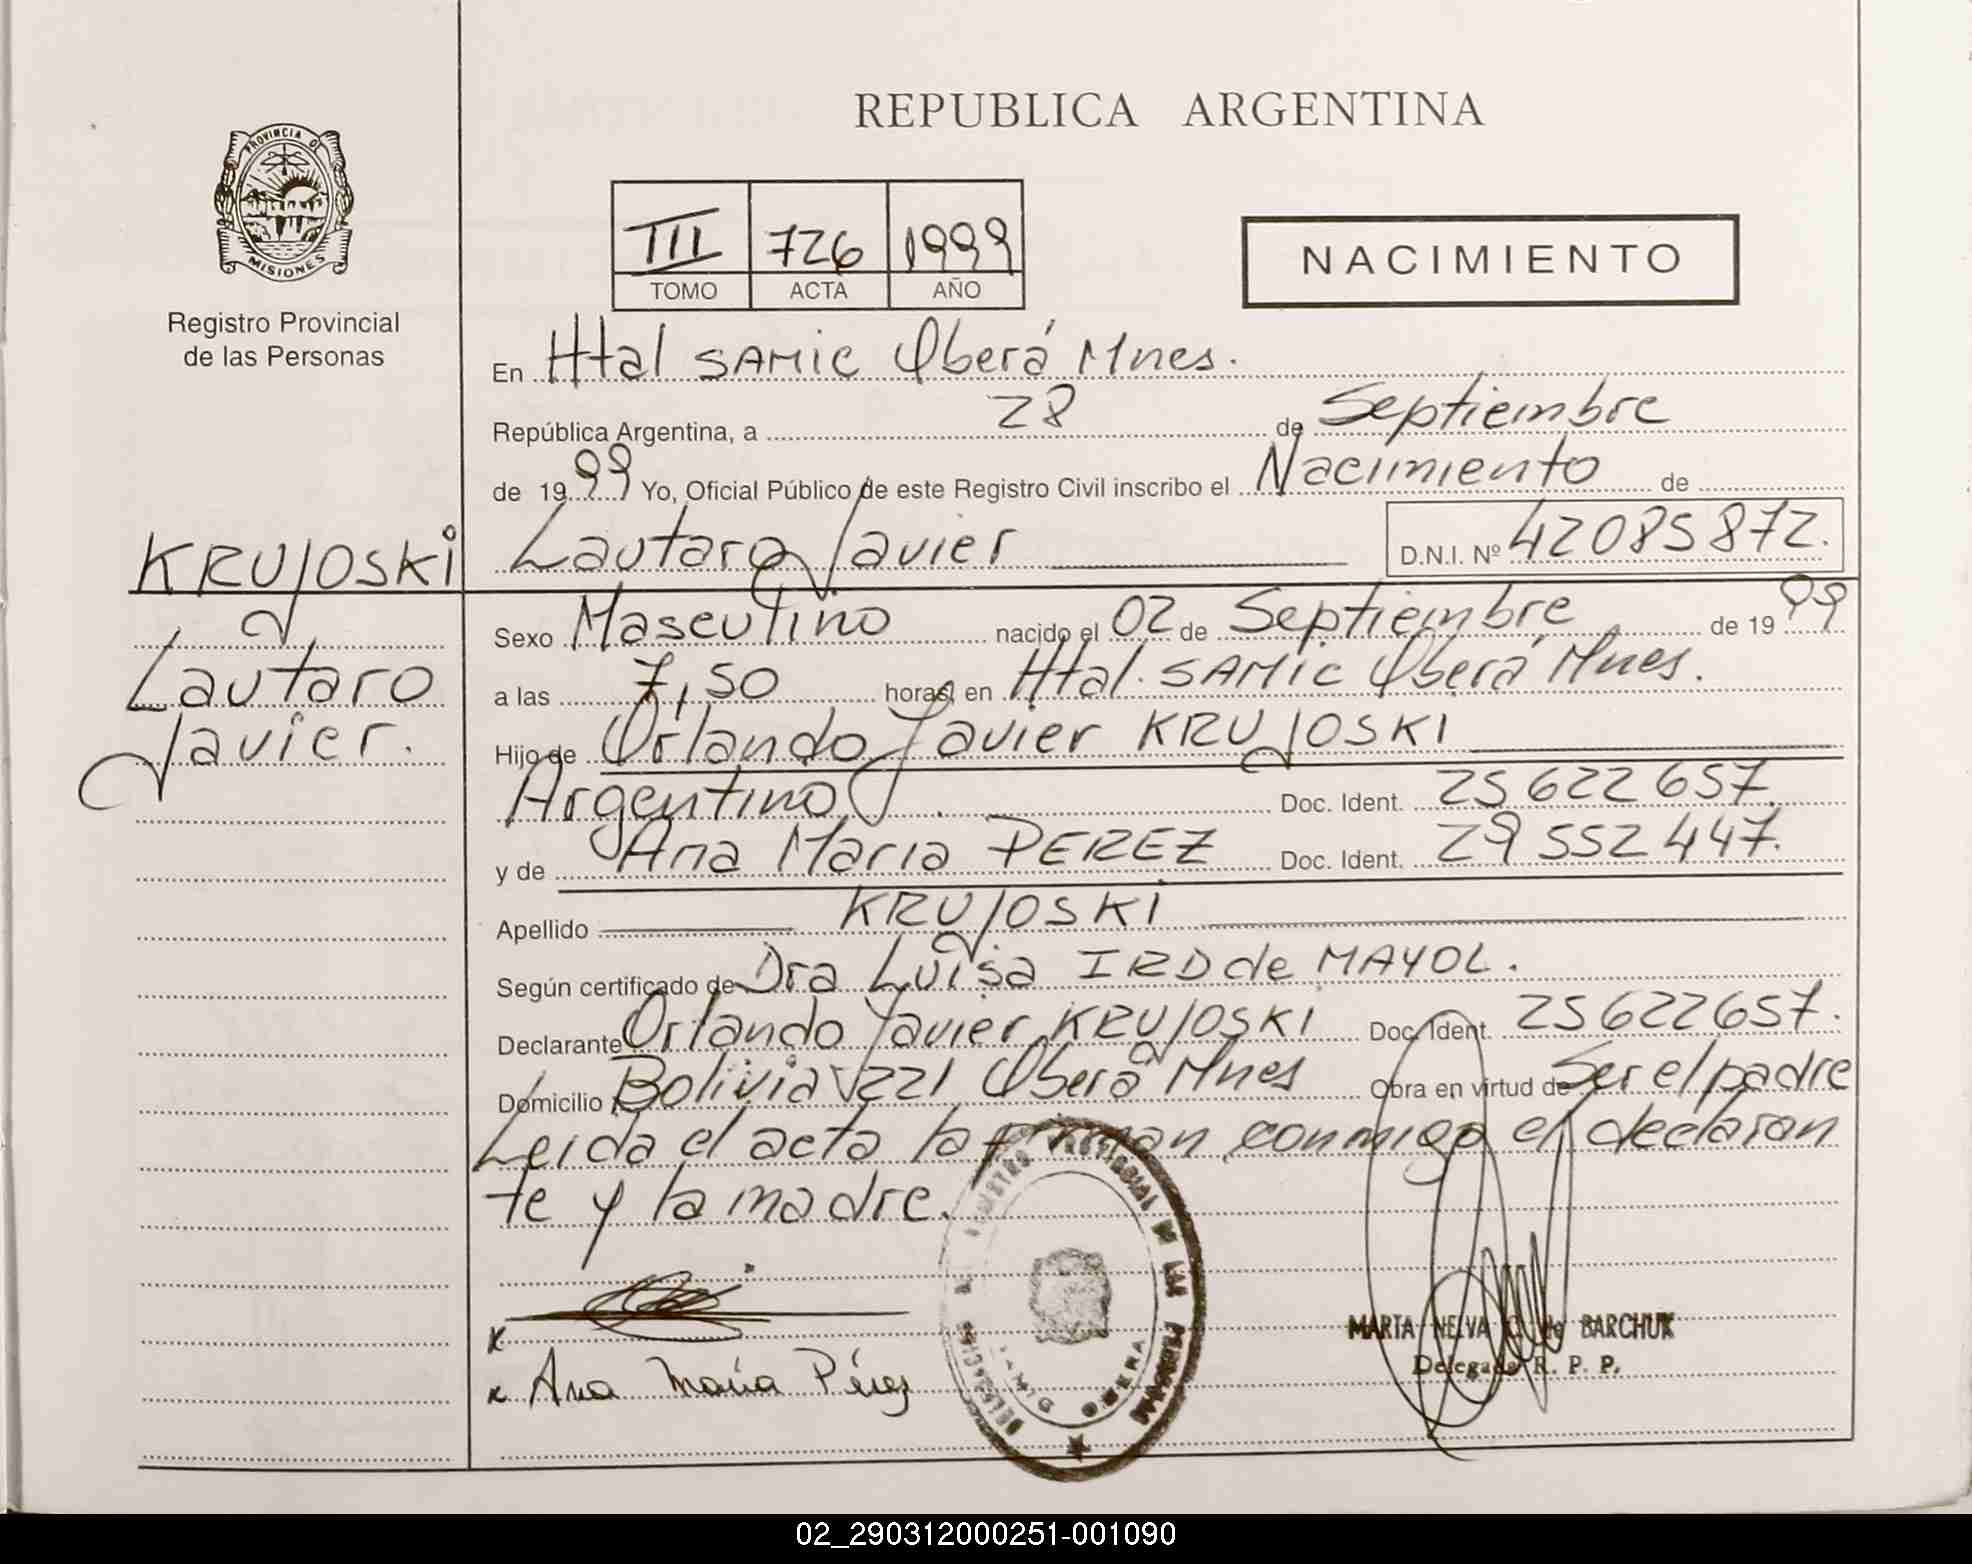 REPUBLICA ARGENTINA
PROVINCIA DE
MISIONES
Registro Provincial
de las Personas
III 726 1999
TOMO ACTA AÑO
NACIMIENTO
En Htal SAMIC Oberá Mnes.
República Argentina, a 28 de Septiembre
de 1999 Yo, Oficial Público de este Registro Civil inscribo el Nacimiento de
Lautaro Javier D.N.I. Nº 42085872.
KRUJOSKI
Lautaro
Javier.
Sexo Masculino nacido el 02 de Septiembre de 1999
a las 7,50 horas, en Htal. SAMIC Oberá Mnes.
Hijo de Orlando Javier KRUJOSKI
Argentino Doc. Ident. 25622657.
y de Ana Maria PEREZ Doc. Ident. 29552447.
Apellido KRUJOSKI
Según certificado de Dra Luisa IRD de MAYOL.
Declarante Orlando Javier KRUJOSKI Doc. Ident. 25622657.
Domicilio Bolivia 221 Oberá Mnes Obra en virtud de Ser el padre
Leida el acta la firman conmigo el declaran
te y la madre.
x
x Ana María Pérez
REGISTRO PROVINCIAL DE LAS PERSONAS
OBERA
MARTA NELVA C. de BARCHUK
Delegada R. P. P.
02_290312000251-001090